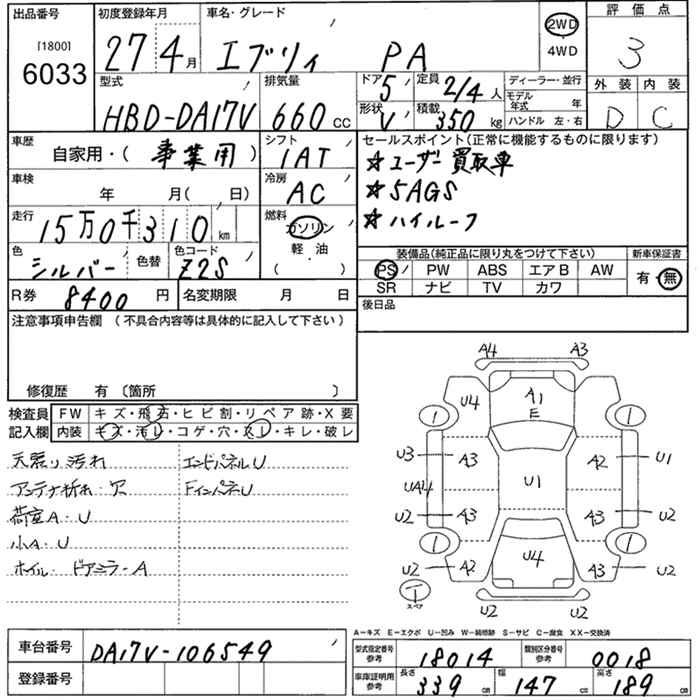 出品番号 初度登録年月 車名・グレード 評価点
[1800] 6033 27年 4月 エブリィ PA 2WD 4WD 3
型式 排気量 ドア 5 定員 2/4人 ディーラー・並行 外装 内装
HBD-DA17V 660cc 形状 V 積載 350kg モデル年式 年 ハンドル 左・右 D C
車歴 自家用・(事業用) シフト IAT セールスポイント(正常に機能するものに限ります)
☆ユーザー買取車
車検 年 月( 日) 冷房 AC ☆5AGS
走行 15万0千310km 燃料 ガソリン 軽油 ( ) ☆ハイルーフ
色 シルバー 色替 色コード Z2S 装備品(純正品に限り丸をつけて下さい) 新車保証書
PS PW ABS エアB AW 有・無
R券 8400円 名変期限 月 日 SR ナビ TV カワ
注意事項申告欄 (不具合内容等は具体的に記入して下さい) 後日品
修復歴 有 〔箇所 〕
検査員 FW キズ・飛石・ヒビ割・リペア跡・X要
記入欄 内装 キズ・汚レ・コゲ・穴・スレ・キレ・破レ
天張り汚れ エンドパネルU
アンテナ折れ・穴 FインパネU
荷室A・U
小A・U
ホイル・ドアミラーA
A4 A3
U4 A1
E
1 1
U3 A3 A2 U1
UA4 U1
U2 A3 A3 U2
1 1
U4
U2 A2 A3 U2
T
スペア
U2 U2
A-キズ E-エクボ U-凹み W-補修跡 S-サビ C-腐食 XX-交換済
車台番号 DA17V-106549 型式指定番号 参考 18014 類別区分番号 参考 0018
登録番号 車庫証明用 参考 長さ 339cm 幅 147cm 高さ 189cm